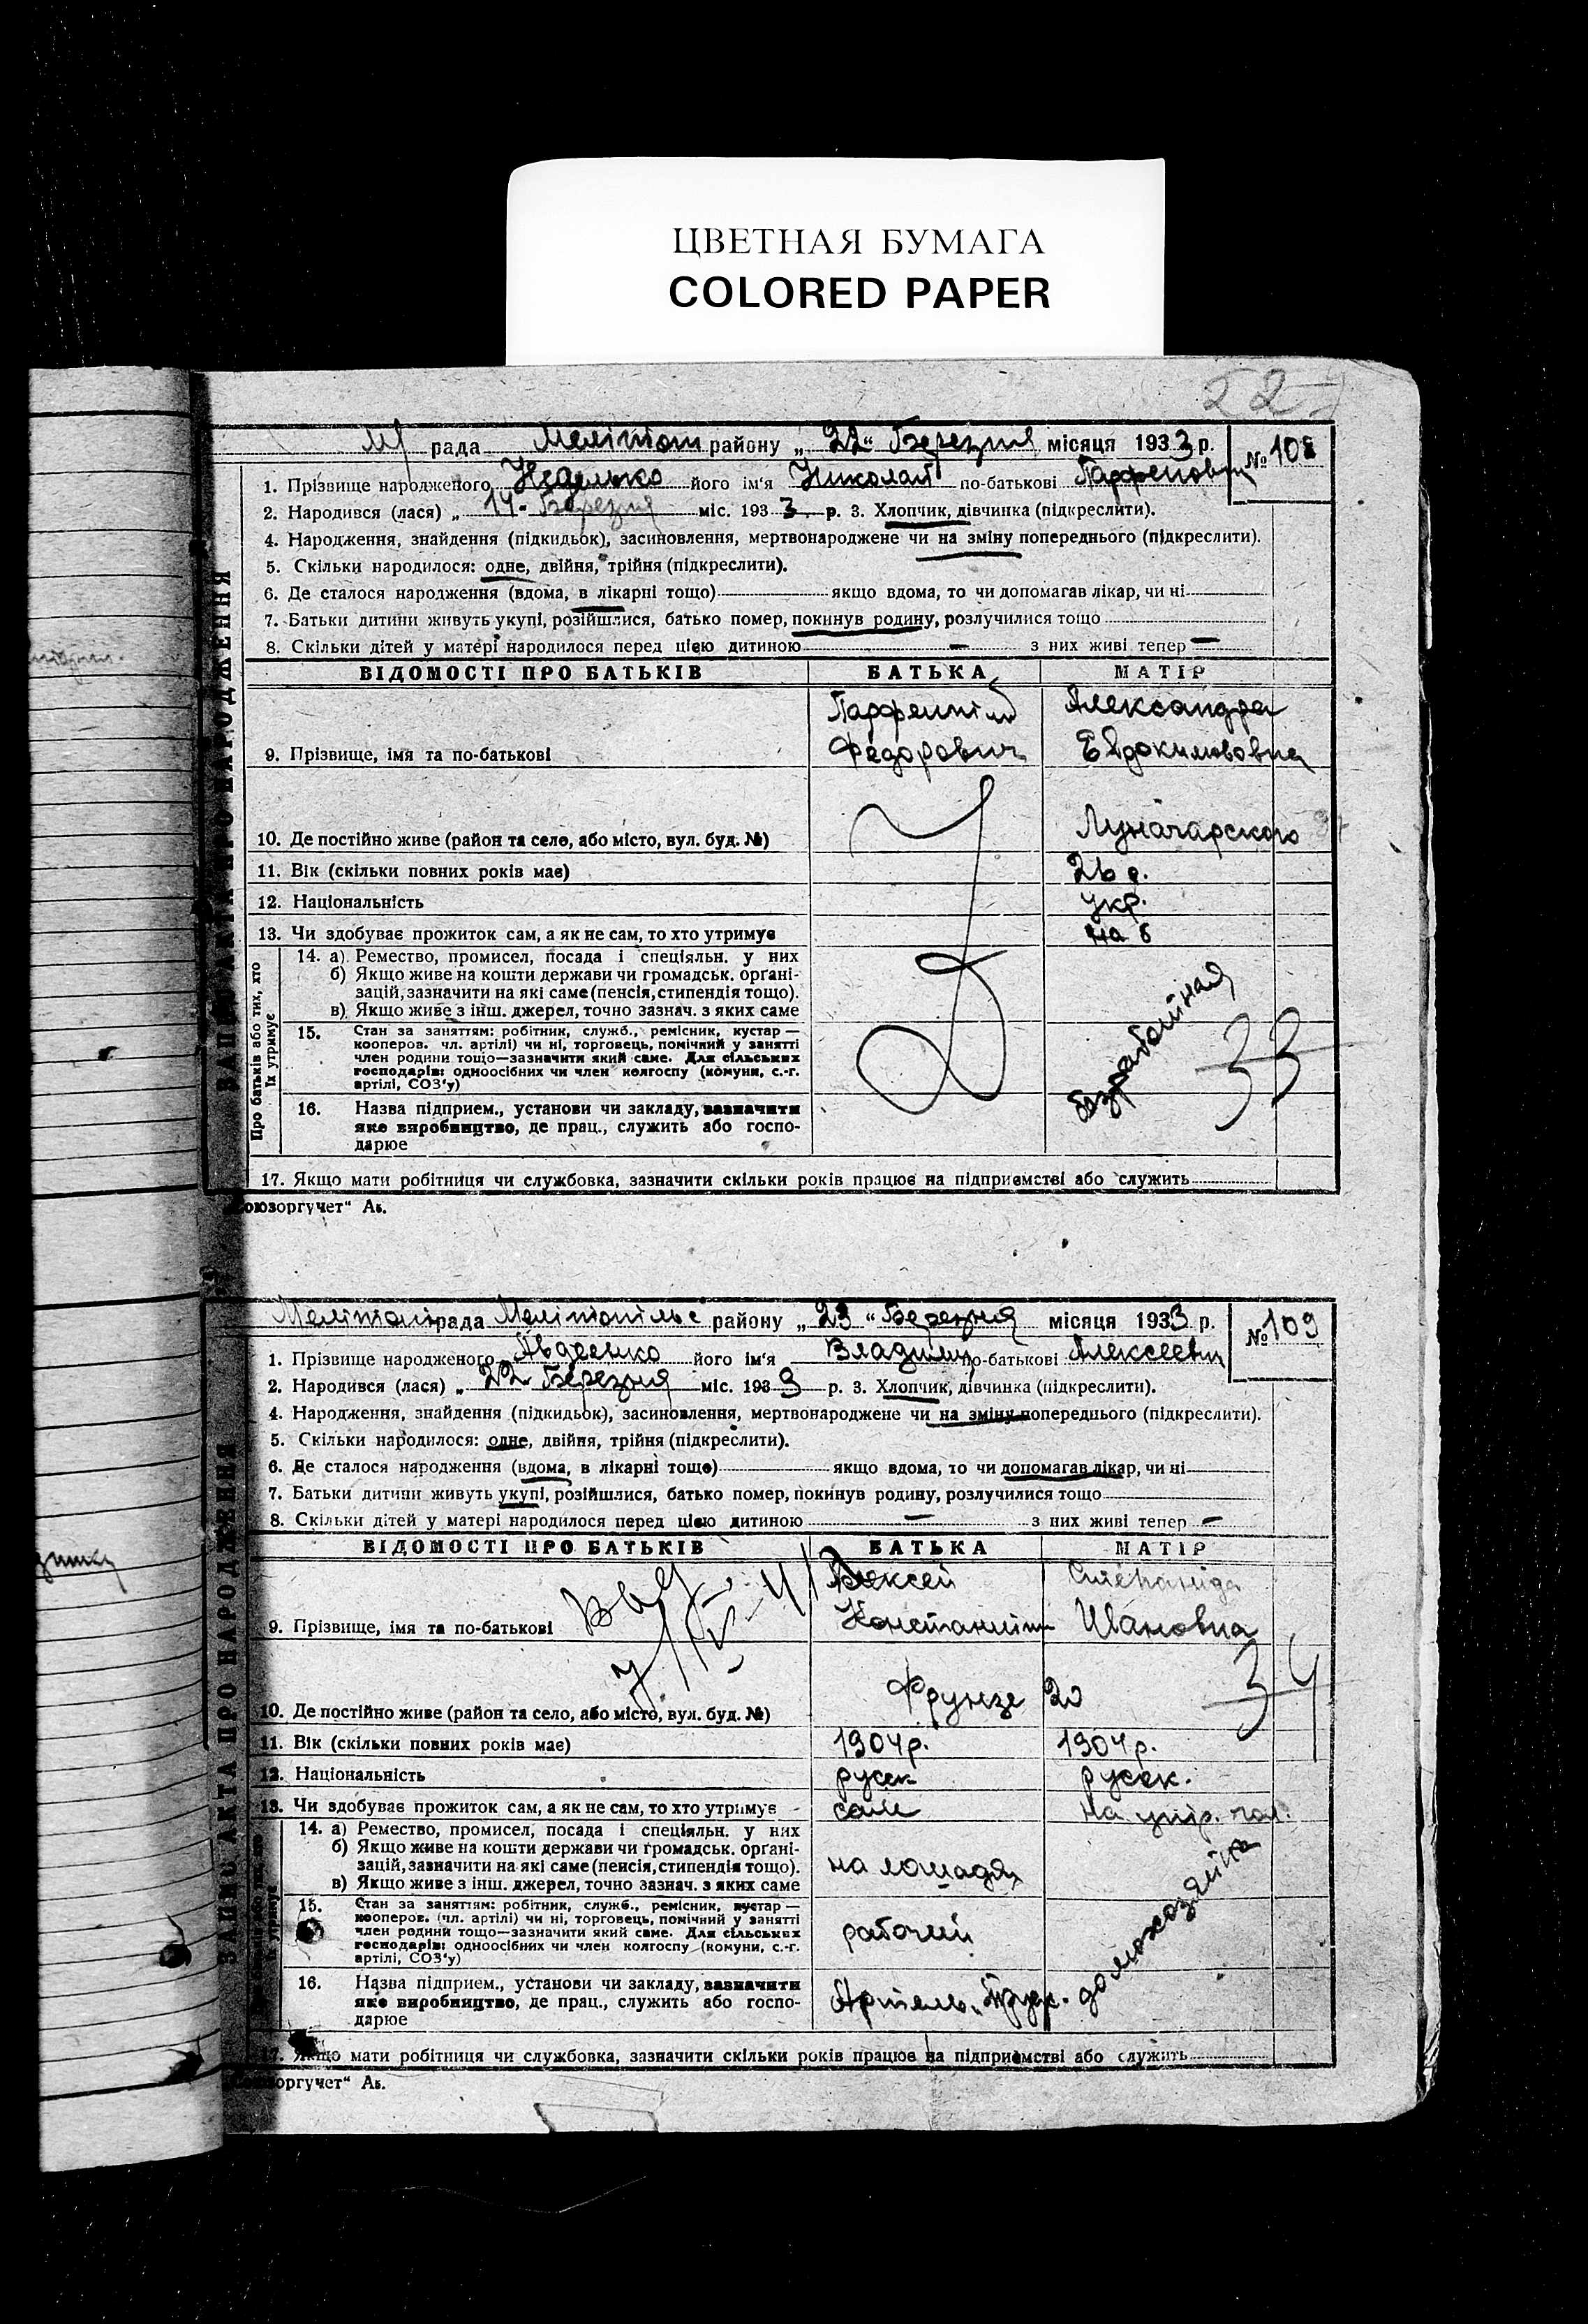 ЦВЕТНАЯ БУМАГА
COLORED PAPER
22
М/ рада Мелітоп району „ 22 “ Березня місяця 1933 р. № 108
1. Прізвище народженого Неделько його ім'я Николай по-батькові Парфенович
2. Народився (лася) „ 14 - Березня міс. 1933 р. 3. Хлопчик, дівчинка (підкреслити).
4. Народження, знайдення (підкидьок), засиновлення, мертвонароджене чи на зміну попереднього (підкреслити).
5. Скільки народилося: одне, двійня, трійня (підкреслити).
6. Де сталося народження (вдома, в лікарні тощо) якщо вдома, то чи допомагав лікар, чи ні
7. Батьки дитини живуть укупі, розійшлися, батько помер, покинув родину, розлучилися тощо
8. Скільки дітей у матері народилося перед цією дитиною — з них живі тепер —
ВІДОМОСТІ ПРО БАТЬКІВ БАТЬКА МАТІР
ЗАПИС АКТА ПРО НАРОДЖЕННЯ
Александра
9. Прізвище, імя та по-батькові Федорович Евдокимововна
10. Де постійно живе (район та село, або місто, вул. буд. №) Луначарского
11. Вік (скільки повних років має) 26 р.
12. Національність укр.
13. Чи здобуває прожиток сам, а як не сам, то хто утримує
Про батьків або тих, хто їх утримує
14. а) Ремество, промисел, посада і спеціяльн. у них
б) Якщо живе на кошти держави чи громадськ. органі-
зацій, зазначити на які саме (пенсія, стипендія тощо).
в) Якщо живе з інш. джерел, точно зазнач. з яких саме
безработная
33
15. Стан за заняттям: робітник, служб., ремісник, кустар —
кооперов. чл. артілі) чи ні, торговець, помічний у занятті
член родини тощо—зазначити який саме. Для сільських
господарів: одноосібних чи член колгоспу (комуни, с.-г.
артілі, СОЗ'у)
16. Назва підприєм., установи чи закладу, зазначити
яке виробництво, де прац., служить або госпо-
дарює
17. Якщо мати робітниця чи службовка, зазначити скільки років працює на підприємстві або служить
оюзоргучет“ Аь.
Мелітоп рада Мелітопільс району „ 23 “ Березня місяця 1933 р. № 109
1. Прізвище народженого Авдеенко його ім'я Владимир по-батькові Алексеевич
2. Народився (лася) „ 22 Березня міс. 1933 р. 3. Хлопчик, дівчинка (підкреслити).
4. Народження, знайдення (підкидьок), засиновлення, мертвонароджене чи на зміну попереднього (підкреслити).
5. Скільки народилося: одне, двійня, трійня (підкреслити).
6. Де сталося народження (вдома, в лікарні тощо) якщо вдома, то чи допомагав лікар, чи ні
7. Батьки дитини живуть укупі, розійшлися, батько помер, покинув родину, розлучилися тощо
8. Скільки дітей у матері народилося перед цією дитиною — з них живі тепер —
ВІДОМОСТІ ПРО БАТЬКІВ БАТЬКА МАТІР
ЗАПИС АКТА ПРО НАРОДЖЕННЯ
Алексей Степанида
9. Прізвище, імя та по-батькові Константин Ивановна
34
10. Де постійно живе (район та село, або місто, вул. буд. №) Фрунзе 20
11. Вік (скільки повних років має) 1904 р. 1904 р.
12. Національність русск русск.
13. Чи здобуває прожиток сам, а як не сам, то хто утримує сам на утр. чол.
14. а) Ремество, промисел, посада і спеціяльн. у них
б) Якщо живе на кошти держави чи громадськ. органі-
зацій, зазначити на які саме (пенсія, стипендія тощо). на лошадях
в) Якщо живе з інш. джерел, точно зазнач. з яких саме
домохозяйка
15. Стан за заняттям: робітник, служб., ремісник, кустар —
кооперов. (чл. артілі) чи ні, торговець, помічний у занятті
член родини тощо—зазначити який саме. Для сільських рабочий
господарів: одноосібних чи член колгоспу (комуни, с.-г.
артілі, СОЗ'у)
16. Назва підприєм., установи чи закладу, зазначити
яке виробництво, де прац., служить або госпо- Артель
дарює
17. Якщо мати робітниця чи службовка, зазначити скільки років працює на підприємстві або служить
оргучет“ Аь.